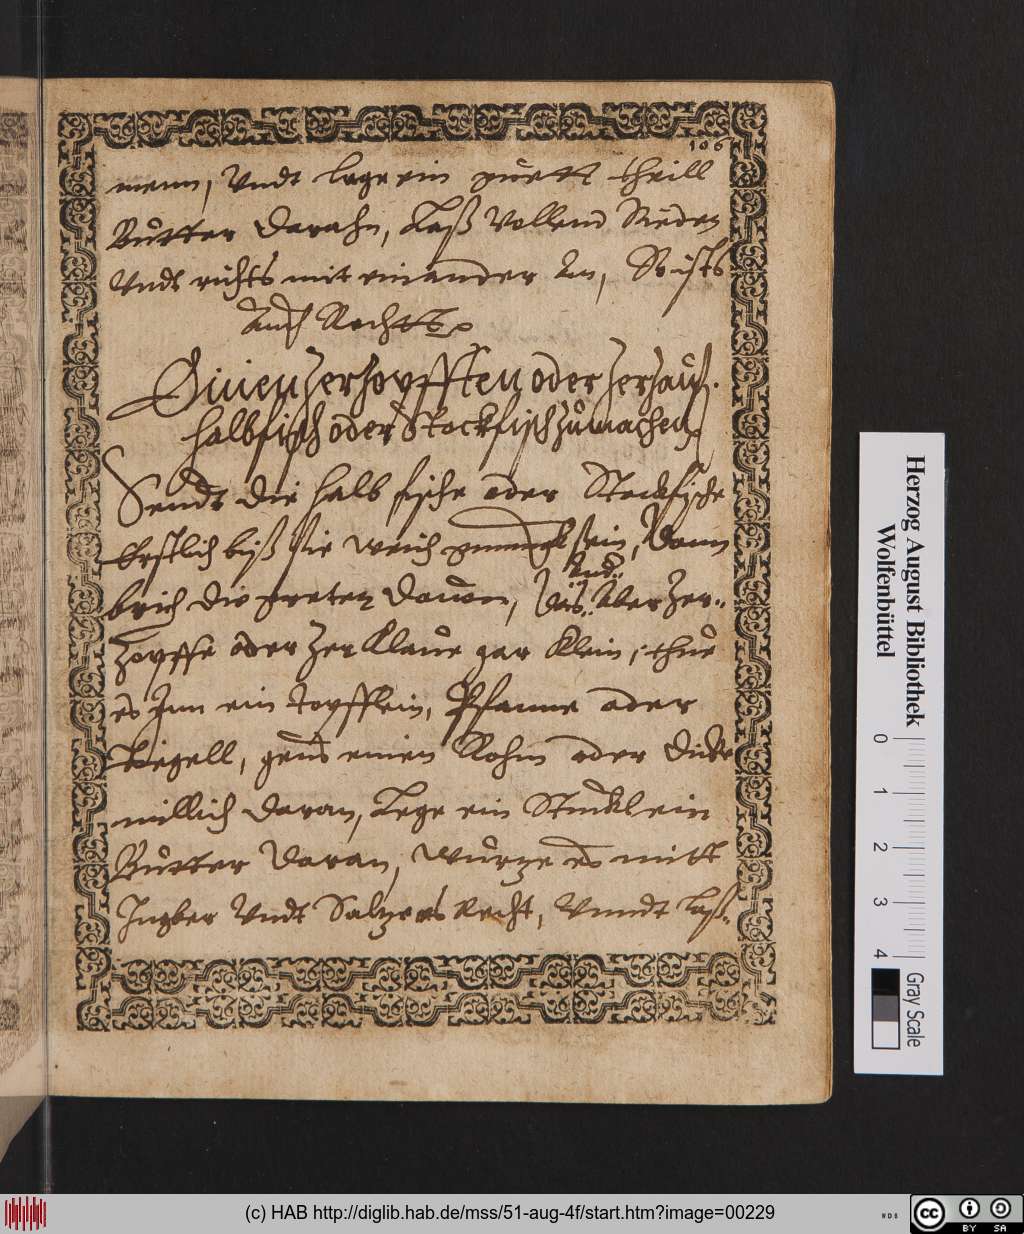 106
menn, Vndt lege ein guett theill
Butter darahn, Laß Vollend Sieden
Vndt richts mit einander An, So ists
Auch Rechtt
Einen zerhopfften oder zerhaus.
halbfisch oder Stockfisch zumachen
Seudt die halb fische oder Stockfische
Erstlich biß sie weich genugk sein, Dann
brich die greten dauon,
Vnd
das Aber Zer..
Zopffe oder Zer Klaue gar Klein, thue
es Inn ein topfflein, Pfanne oder
Tiegell, geus einen Rohm oder dicke
millich daran, Lege ein Stucklein
Butter daran, wurze es mitt
Ingber Vndt Saltze es Recht, Vnndt laß.
Herzog August Bibliothek
Wolfenbüttel
0 1 2 3 4
Gray Scale
(c) HAB http://diglib.hab.de/mss/51-aug-4f/start.htm?image=00229
WDB
cc BY SA